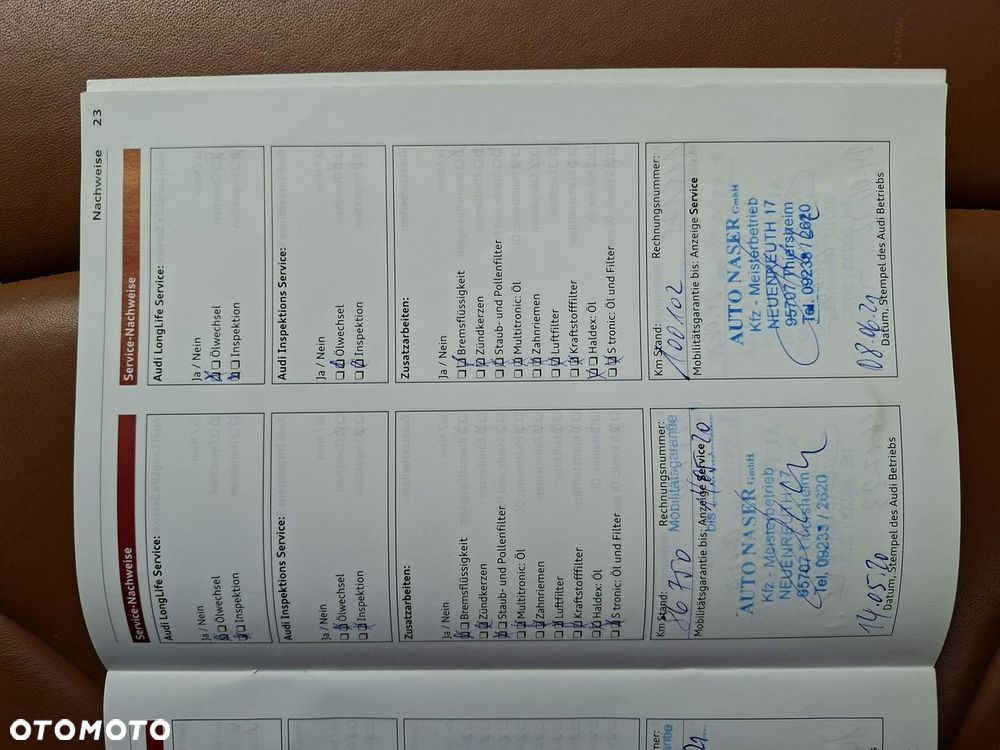 Nachweise 23
Service-Nachweise
Audi LongLife Service:
Ja / Nein
Ölwechsel
Inspektion
Audi Inspektions Service:
Ja / Nein
Ölwechsel
Inspektion
Zusatzarbeiten:
Ja / Nein
Bremsflüssigkeit
Zündkerzen
Staub- und Pollenfilter
Multitronic: Öl
Zahnriemen
Luftfilter
Kraftstofffilter
Haldex: Öl
S tronic: Öl und Filter
Km Stand: Rechnungsnummer:
86750
Mobilitätsgarantie
Mobilitätsgarantie bis: Anzeige Service
bis
AUTO NASER GmbH
Kfz - Meisterbetrieb
NEUENREUTH 17
95707 Thiersheim
Tel. 09233 / 2620
14.05.20
Datum, Stempel des Audi Betriebs
Service-Nachweise
Audi LongLife Service:
Ja / Nein
Ölwechsel
Inspektion
Audi Inspektions Service:
Ja / Nein
Ölwechsel
Inspektion
Zusatzarbeiten:
Ja / Nein
Bremsflüssigkeit
Zündkerzen
Staub- und Pollenfilter
Multitronic: Öl
Zahnriemen
Luftfilter
Kraftstofffilter
Haldex: Öl
S tronic: Öl und Filter
Km Stand: Rechnungsnummer:
100102
Mobilitätsgarantie bis: Anzeige Service
AUTO NASER GmbH
Kfz - Meisterbetrieb
NEUENREUTH 17
95707 Thiersheim
Tel. 09233 / 2620
08.06.21
Datum, Stempel des Audi Betriebs
OTOMOTO